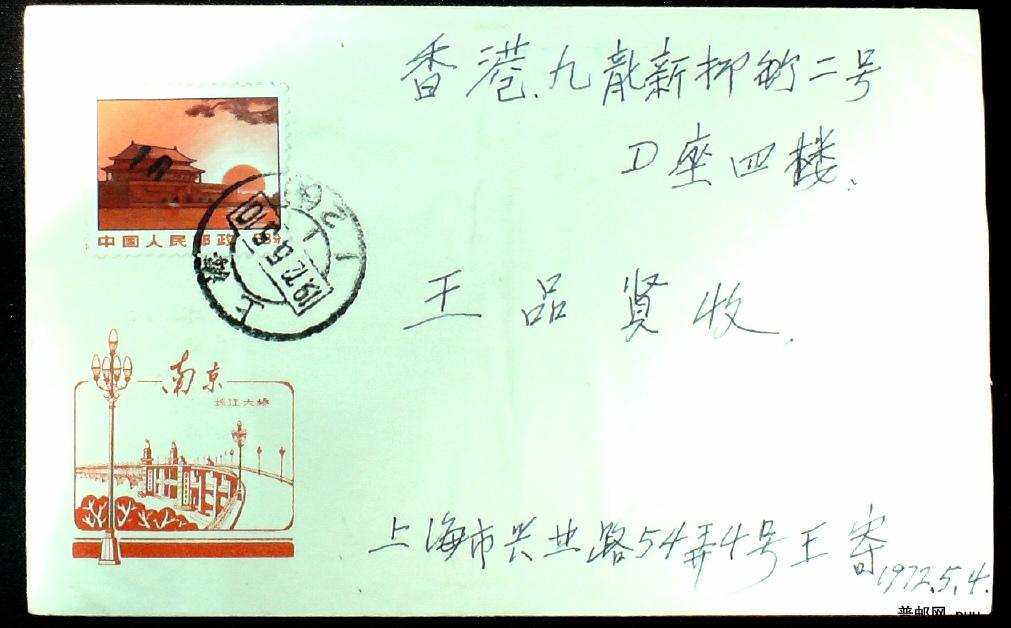 香港.九龍新柳街二号
D座四楼.
王品贤收.
中国人民邮政 8分
上海
1972.5.5.10
南京
长江大桥
上海市兴业路54弄4号王寄
1972.5.4.
普邮网